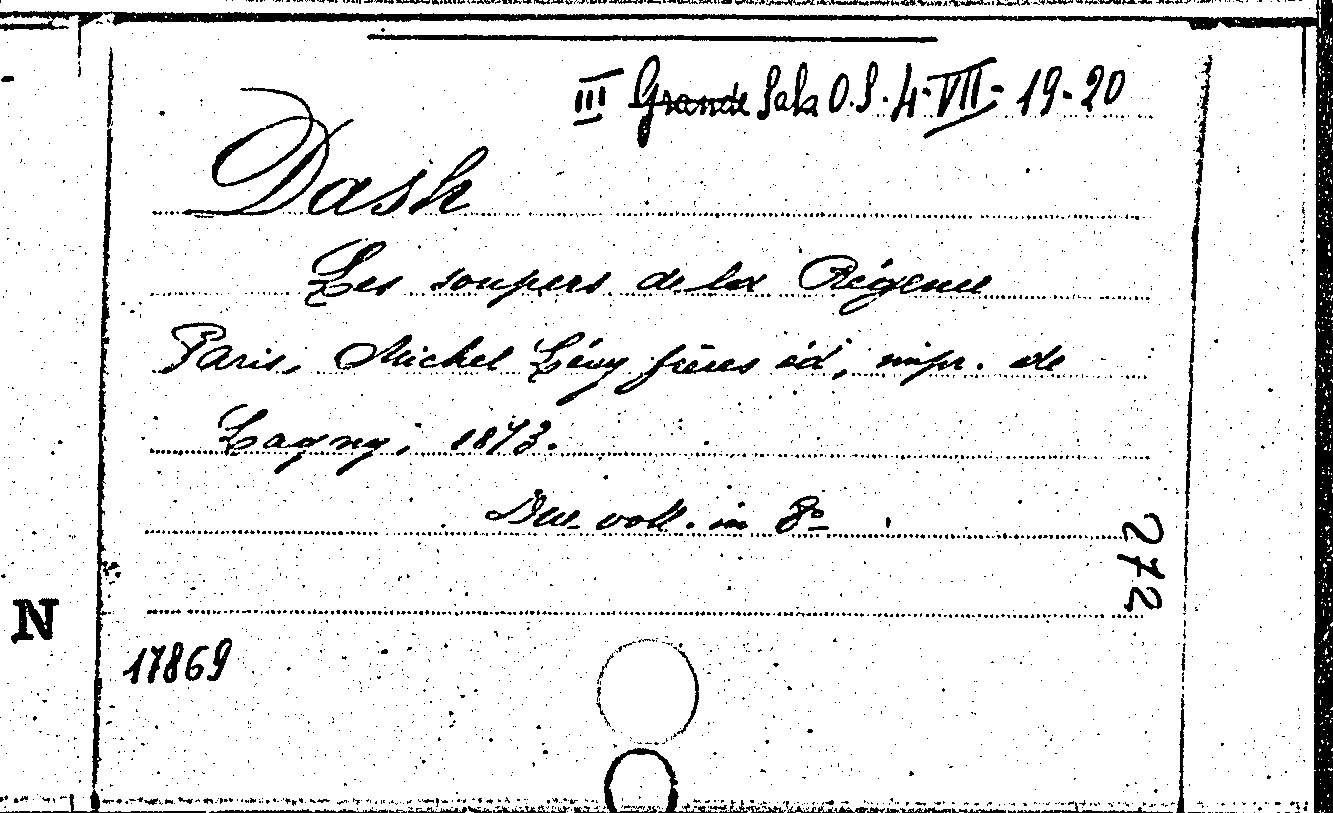 III Grande Sala O.S. 4-VII-19-20
Dash
Les soupers de la Régence
Paris, Michel Lévy frères éd, impr. de
Lagny, 1873.
Due voll. in 8º
272
N
17869